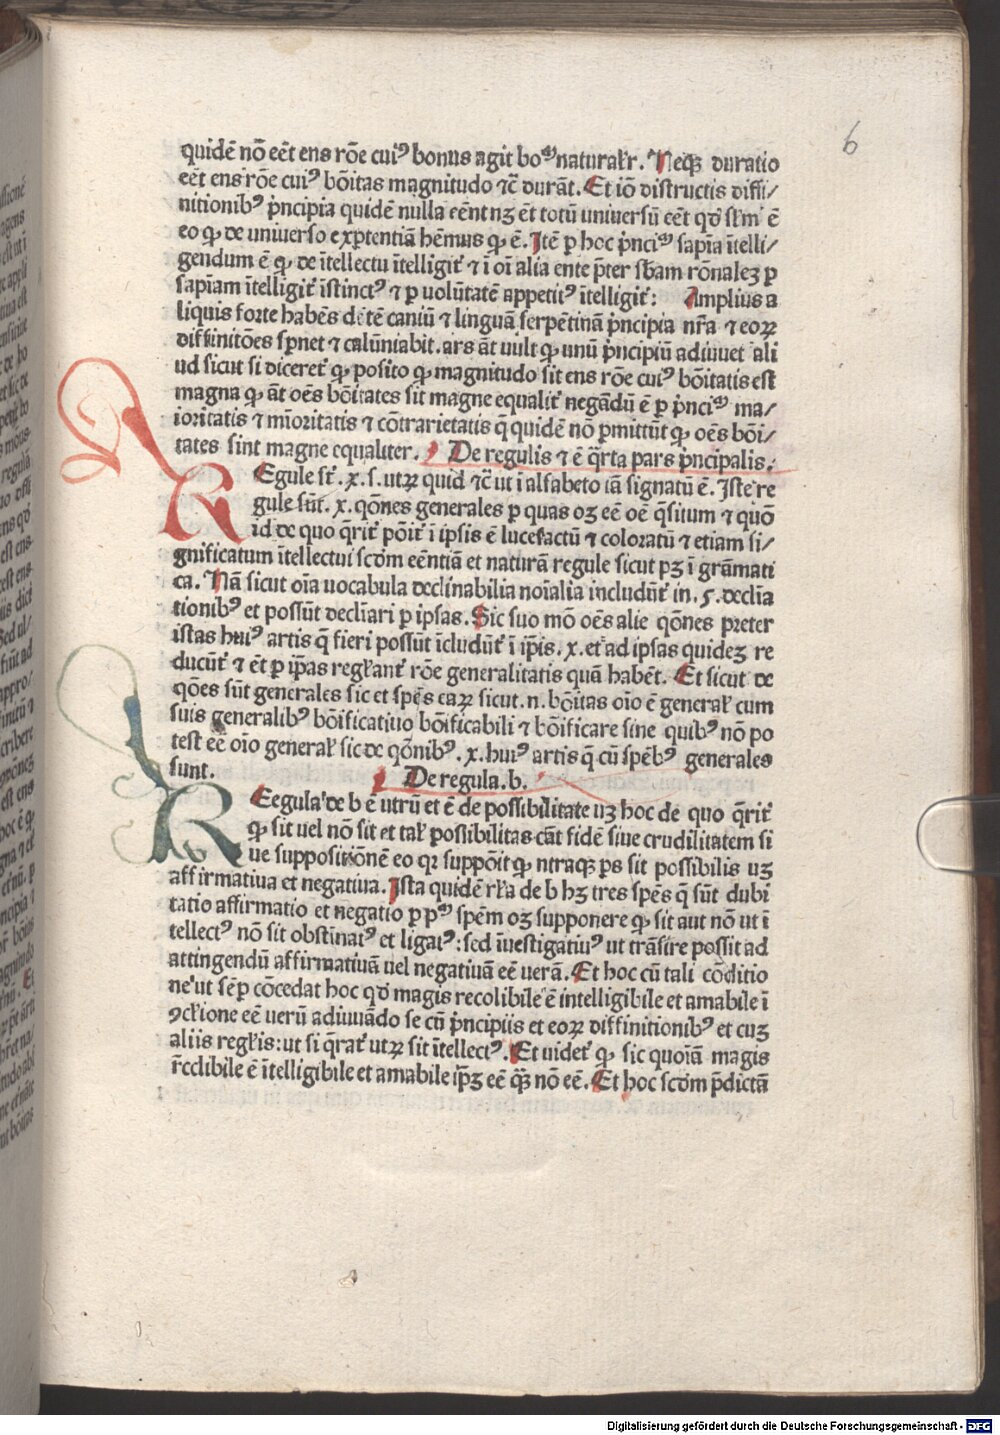 6
quidē nō eēt ens rōe cui⁹ bonus agit bo⁹ naturalr̄. Neqꝫ duratio
eēt ens rōe cui⁹ bōitas magnitudo ⁊c̄ durāt. Et iō distructis diffi/
nitionib⁹ p̄ncipia quidē nulla eēnt nꝫ ēt totū universū eēt qd̓ ē
eo qꝫ de universo experientiā hēmus qꝫ ē. Itē p hoc sapīa ītelli/
gendum ē qꝫ de ītellectu ītelligit̄ ⁊ ī oī alia ente p̄ter sb̄am rōnalez p
sapiam ītelligit̄ īstinct⁹ ⁊ p volūtatē appetit⁹ ītelligit̄: Amplius a
liquis forte habēs dētē caniū ⁊ linguā serpētinā p̄ncipia nr̄a ⁊ eoꝝ
diffinitōes sp̄net ⁊ calūniabit. ars āt vult qꝫ unū p̄ncipiū adiuvet ali
ud sicut si diceret̄ qꝫ posito qꝫ magnitudo sit ens rōe cui⁹ bōitatis est
magna qꝫ āt oēs bōitates sit magne equalit̄ negādū ē p ma/
ioritatis ⁊ mīoritatis ⁊ cōtrarietatis q̄ quidē nō pmittūt qꝫ oēs bōi/
tates sint magne equaliter. De regulis ⁊ ē q̄rta pars p̄ncipalis.
REgule st̄. x. s. utꝝ quid ⁊c̄ ut ī alfabeto iā signatū ē. Iste re
gule sūt. x. qōnes generales p quas oꝫ eē oē q̄situm ⁊ quō
id de quo q̄rit̄ pōit̄ ī ipsis ē lucefactū ⁊ coloratū ⁊ etiam si/
gnificatum ītellectui scdm eēntiā et naturā regule sicut pꝫ ī grāmati
ca. Nā sicut oīa vocabula declinabilia noīalia includūt̄ in. 5. declīa
tionib⁹ et possūt declīari p ipsas. Sic suo mō oēs alie qōnes preter
istas hui⁹ artis q̄ fieri possūt īcludūt̄ ī ip̄is. x. et ad ipsas quidez re
ducūt̄ ⁊ ēt p ip̄as reglant̄ rōe generalitatis quā habēt. Et sicut de
qōes sūt generales sic et spēs eaꝝ sicut. n. bōitas oīo ē general̄ cum
suis generalib⁹ bōificativo bōificabili ⁊ bōificare sine quib⁹ nō po
test eē oīo general̄ sic de qōnib⁹. x. hui⁹ artis q̄ cū spēb⁹ generales
sunt. De regula. b.
REegula de b ē utrū et ē de possibilitate uꝫ hoc de quo q̄rit̄
qꝫ sit vel nō sit et tal̄ possibilitas cāt fidē sive crudilitatem si
ve suppositiōnē eo qꝫ suppōit qꝫ ntraqꝫ ps sit possibilis uꝫ
affirmativa et negativa. Ista quidē rl̄a de b hꝫ tres spēs q̄ sūt dubi
tatio affirmatio et negatio p p⁹ spēm oꝫ supponere qꝫ sit aut nō ut ī
tellect⁹ nō sit obstinat⁹ et ligat⁹: sed īvestigativ⁹ ut trāsire possit ad
attingendū affirmativā vel negativā eē verā. Et hoc cū tali cōditio
ne ut sēp cōcedat hoc qd̓ magis recolibile ē intelligibile et amabile ī
ꝯcl̄ione eē verū adiuvādo se cū p̄ncipiis et eoꝝ diffinitionib⁹ et cuꝫ
aliis regl̄is: ut si q̄rat̄ utꝝ sit ītellect⁹. Et videt̄ qꝫ sic quoīā magis
r̄cclibile ē ītelligibile et amabile ip̄ꝫ eē qꝫ nō eē. Et hoc scdm p̄dictā
Digitalisierung gefördert durch die Deutsche Forschungsgemeinschaft - DFG